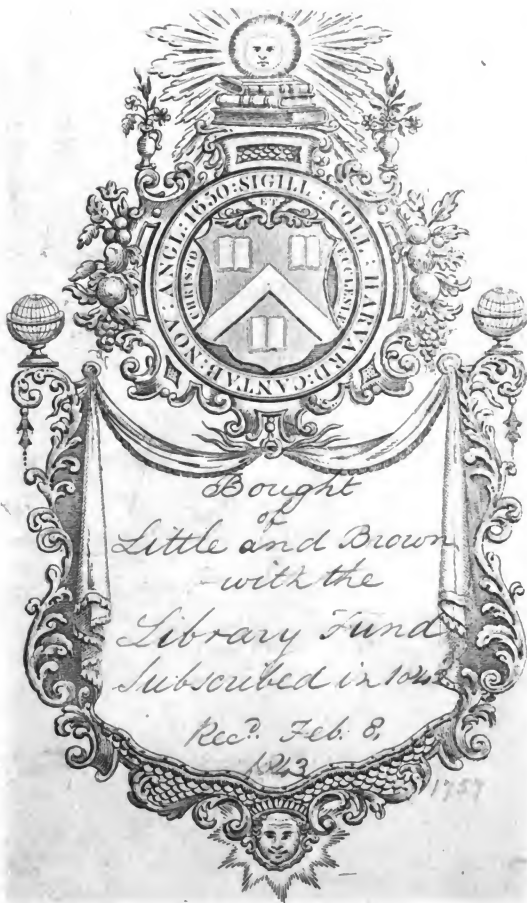 SIGILL : COLL : HARVARD : CANTAB : NOV : ANGL : 1650 :
CHRISTO ET ECCLESIÆ
Bought
of
Little and Brown
with the
Library Fund
Subscribed in 1842
Recd. Feb. 8.
1843